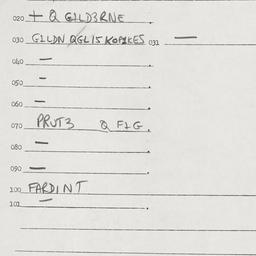 020 + Q GILD3RNE
030 GILDN QGLIS KOPIKES 031 —
040 —
050 —
060 —
070 PRUT3 Q FIG.
080 —
090 —
100 FARDINT
101 —